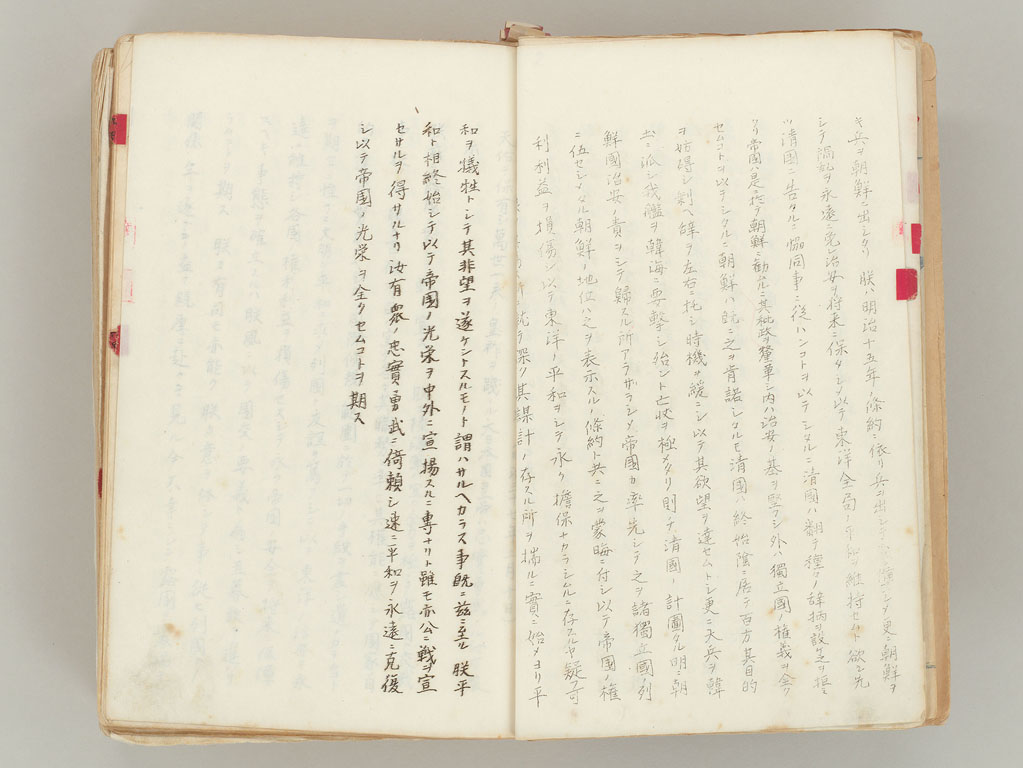 キ兵ヲ朝鮮ニ出シタリ 朕ハ明治十五年ノ條約ニ依リ兵ヲ出シテ變ニ備ヘシメ更ニ朝鮮ヲ
シテ禍乱ヲ永遠ニ免レ治安ヲ将来ニ保タシメ以テ東洋全局ノ平和ヲ維持セント欲シ先
ツ清國ニ告クルニ協同事ニ從ハンコトヲ以テシタルニ清國ハ翻テ種々ノ辞柄ヲ設ケ之ヲ拒ミ
タリ帝國ハ是ニ於テ朝鮮ニ勧ムルニ其秕政ヲ釐革シ内ハ治安ノ基ヲ堅クシ外ハ獨立國ノ権義ヲ全ク
セムコトヲ以テシタルニ朝鮮ハ既ニ之ヲ肯諾シタルモ清國ハ終始陰ニ居テ百方其目的
ヲ妨碍シ剰ヘ辞ヲ左右ニ托シ時機ヲ緩ニシ以テ其欲望ヲ達セムトシ更ニ大兵ヲ韓
土ニ派シ我艦ヲ韓海ニ要撃シ殆ント亡状ヲ極メタリ則チ清國ノ計圖タル明ニ朝
鮮國治安ノ責ヲシテ歸スル所アラザラシメ帝國カ率先シテ之ヲ諸獨立國ノ列
ニ伍セシメタル朝鮮ノ地位ハ之ヲ表示スルノ條約ト共ニ之ヲ蒙晦ニ付シ以テ帝國ノ権
利利益ヲ損傷シ以テ東洋ノ平和ヲシテ永ク擔保ナカラシムルニ存スルヤ疑フ可
就テ深ク其謀計ノ存スル所ヲ揣ルニ實ニ始メヨリ平
和ヲ犠牲トシテ其非望ヲ遂ケントスルモノト謂ハサルヘカラス事既ニ茲ニ至ル 朕平
和ト相終始シテ以テ帝國ノ光栄ヲ中外ニ宣揚スルニ專ナリト雖モ亦公ニ戰ヲ宣
セサルヲ得サルナリ 汝有衆ノ忠實勇武ニ倚頼シ速ニ平和ヲ永遠ニ克復
シ以テ帝國ノ光栄ヲ全クセムコトヲ期ス